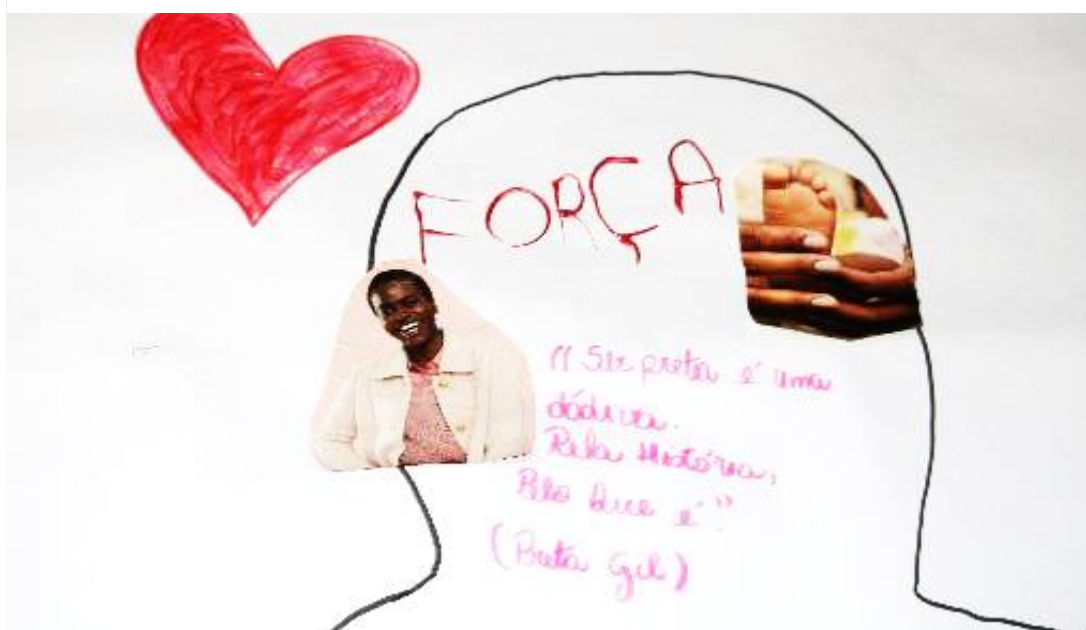 FORÇA
"Ser preta é uma
dádiva.
Pela História,
Pelo que é".
(Preta Gil)